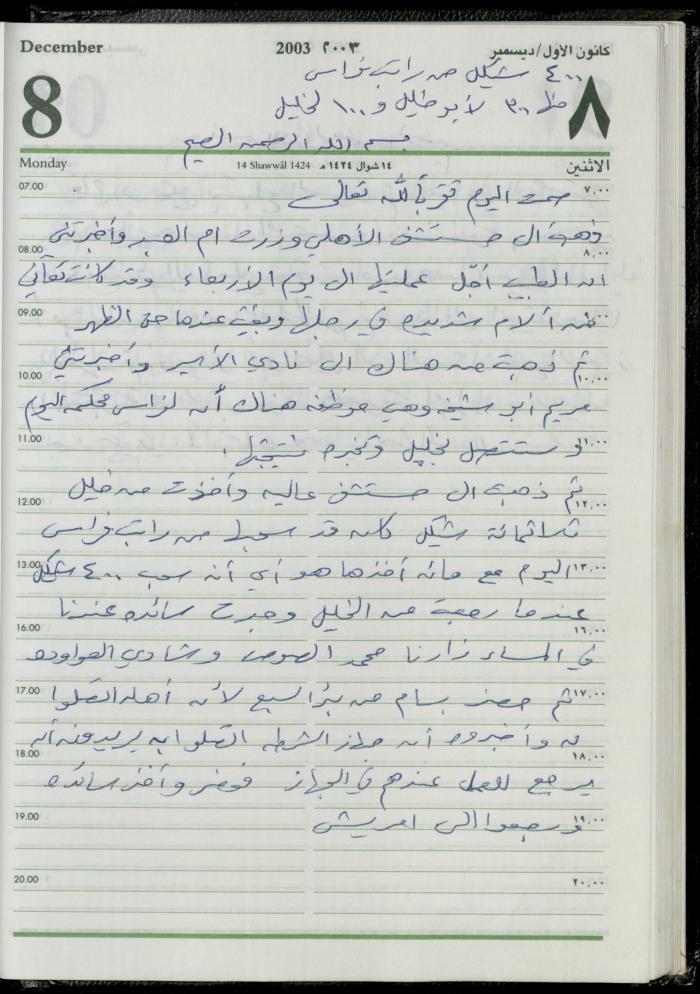 December 2003 ٢٠٠٣ كانون الأول/ديسمبر
٤٠٠ شيكل من راتب فراس
8 منها ٣٠٠ لأبو خليل و ١٠٠ لخليل ٨
بسم الله الرحمن الرحيم
Monday 14 Shawwāl 1424 ١٤ شوال ١٤٢٤ هـ الاثنين
07.00 صمت اليوم تقرباً لله تعالى ٧,٠٠
ذهبت الى مستشفى الأهلي وزرت ام العبد وأخبرتني
08.00 ٨,٠٠
ان الطبيب أجل عمليتها الى يوم الأربعاء وقد كانت تعاني
09.00 من آلام شديدة في رجلها وبقيت عندها حتى الظهر
ثم ذهبت من هناك الى نادي الأسير وأخبرتني
10.00 ١٠,٠٠
مريم أبو شيخه وهي موظفه هناك أن لفراس محكمه اليوم
11.00 و ستتصل بخليل وتخبره نتيجتها ١١,٠٠
ثم ذهبت الى مستشفى عاليه وأخذت من خليل
12.00 ١٢,٠٠
ثلاثمائة شيكل كان قد سحبها من راتب فراس
13.00 اليوم مع مائه أخذها هو أي أنه سحب ٤٠٠ شيكل ١٣,٠٠
عندما رجعت من الخليل وجدت سائده عندنا
16.00 ١٦,٠٠
في المساء زارنا محمد الصوص وشادي العواوده
17.00 ثم حضر بسام من بئر السبع لأن أهله اتصلوا ١٧,٠٠
به وأخبروه أن جهاز الشرطه اتصلوا به يريدونه أن
18.00 ١٨,٠٠
يرجع للعمل عندهم في الجهاز فحضر وأخذ سائده
19.00 ورجعوا الى امريش ١٩,٠٠
20.00 ٢٠,٠٠